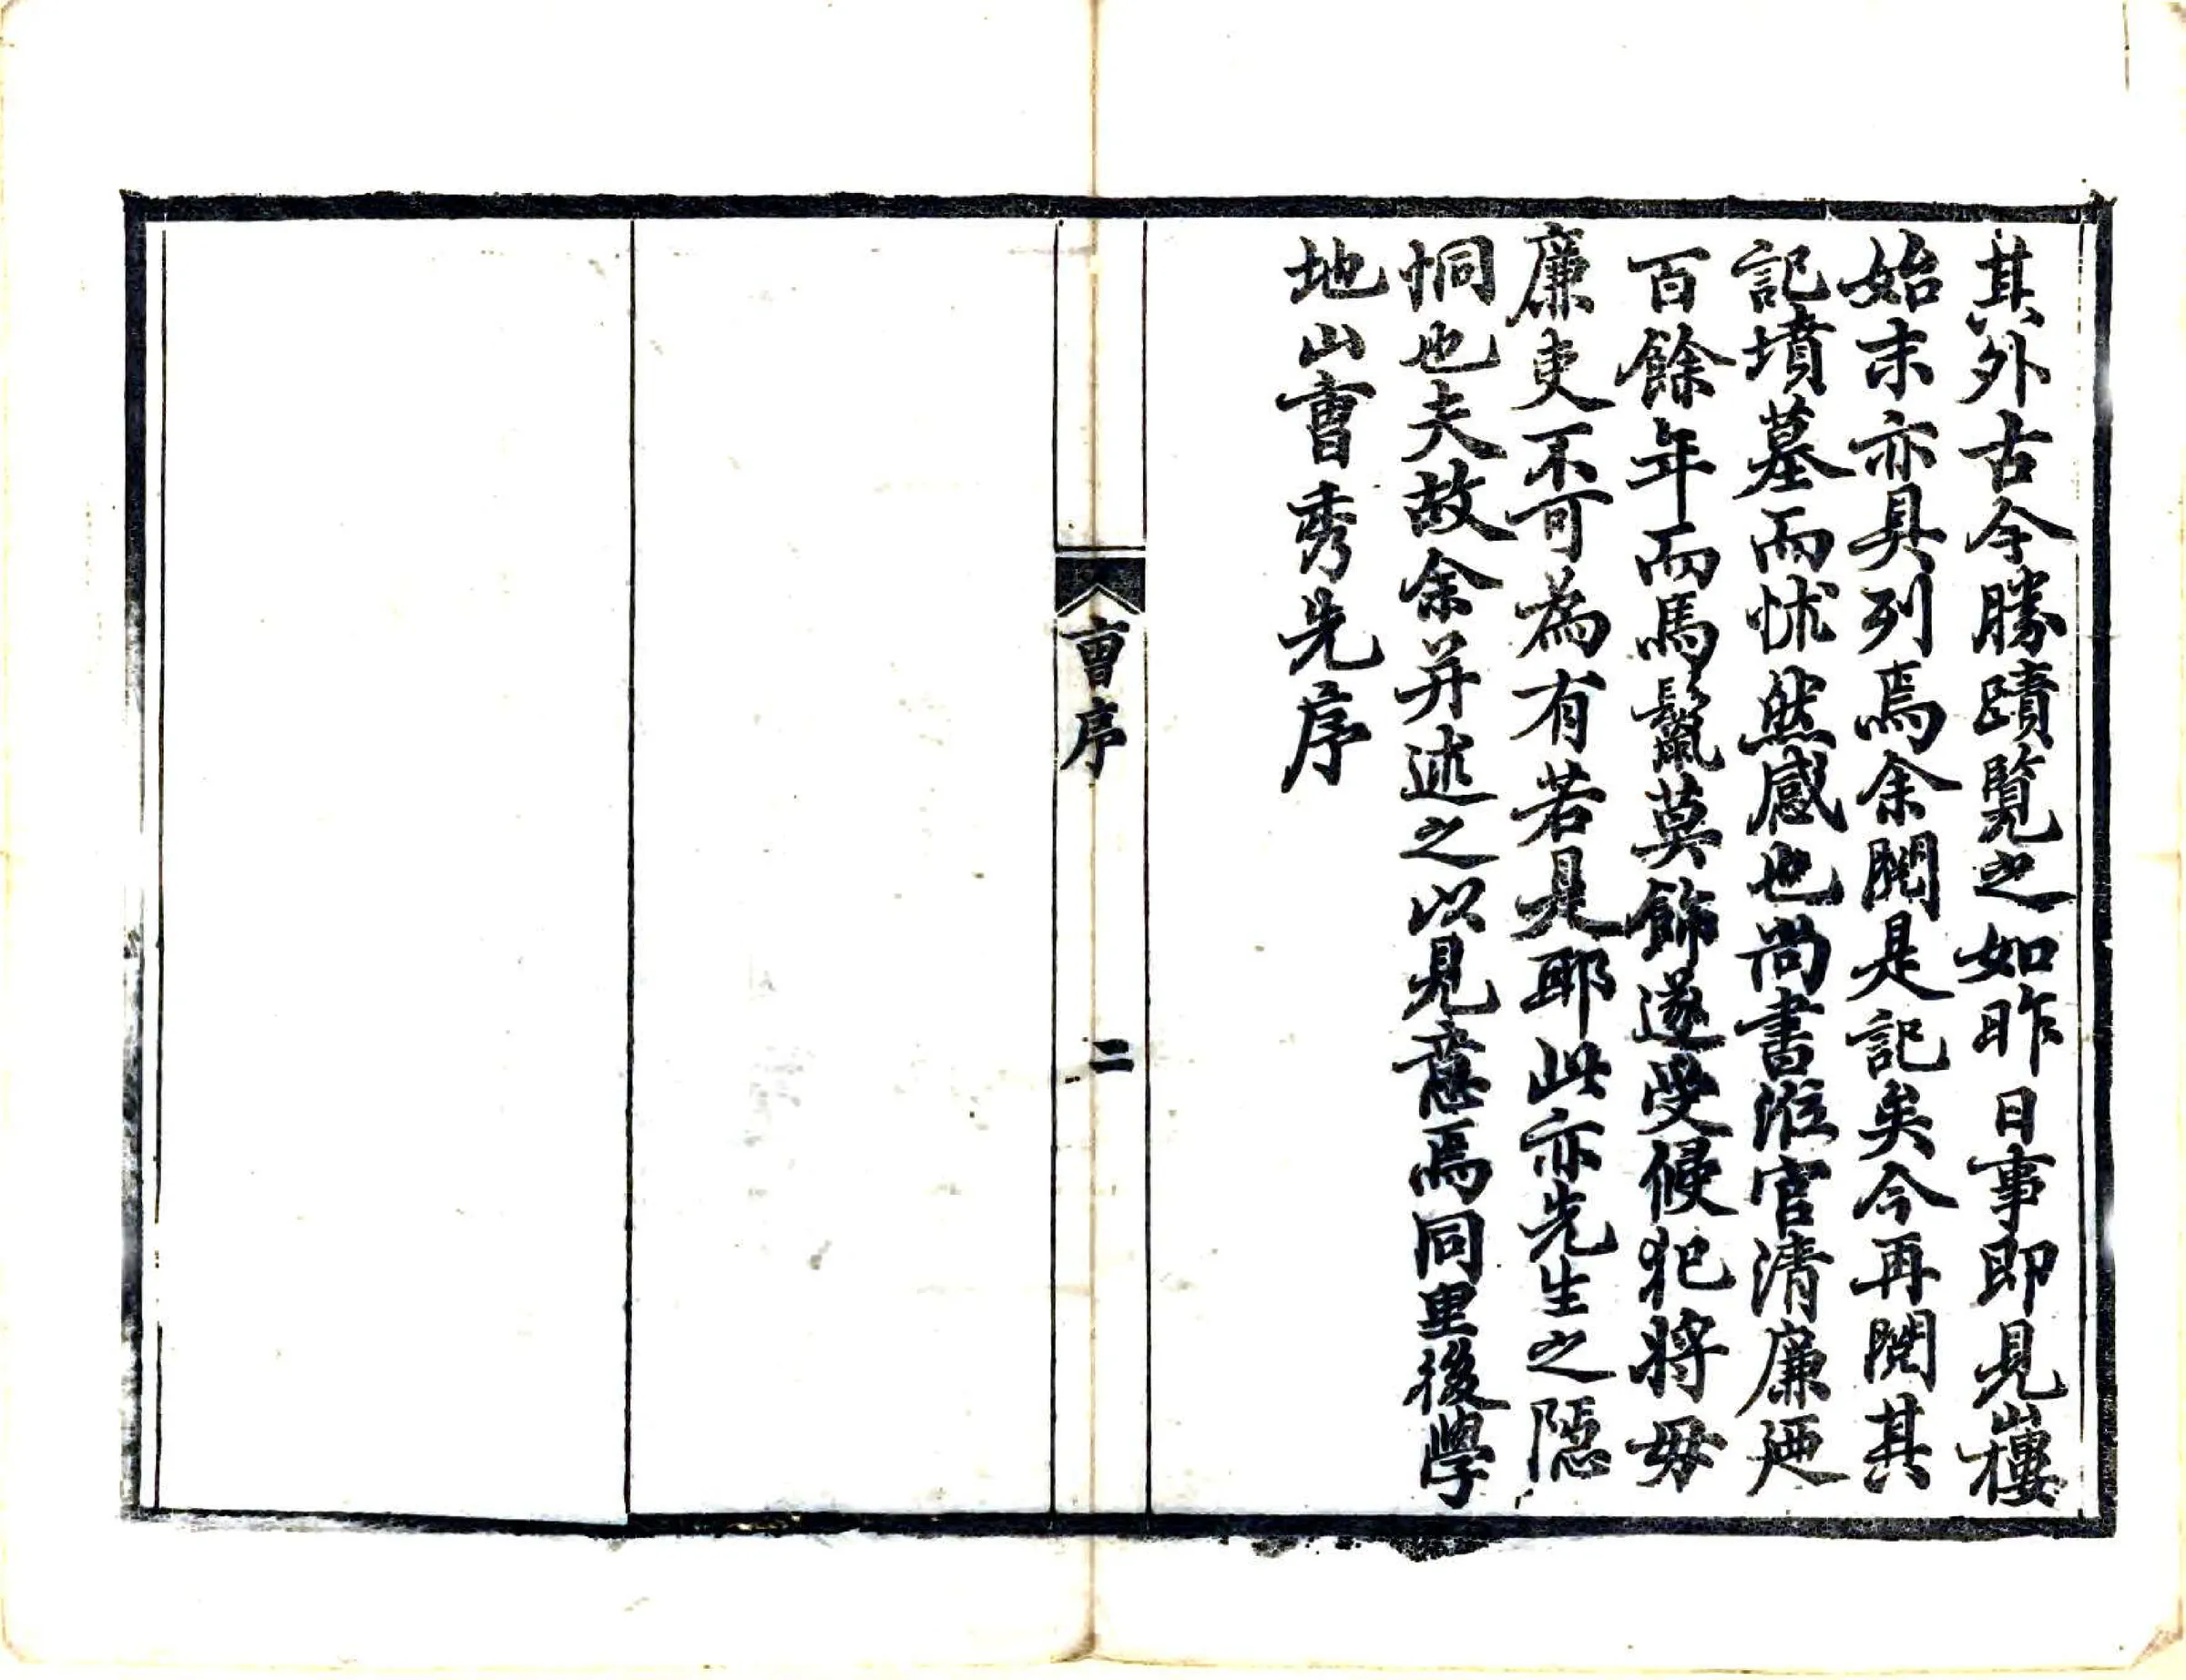 其外古今勝蹟覽之如昨日事即見山樓
始末亦具列焉余閱是記矣今再閱其
記墳墓而怵然感也尚書涖官清廉廼
百餘年而馬鬣莫飾遂受侵犯將毋
廉吏不可為有若是耶此亦先生之隱
恫也夫故余并述之以見意焉同里後學
地山曺秀先序
曺序
二